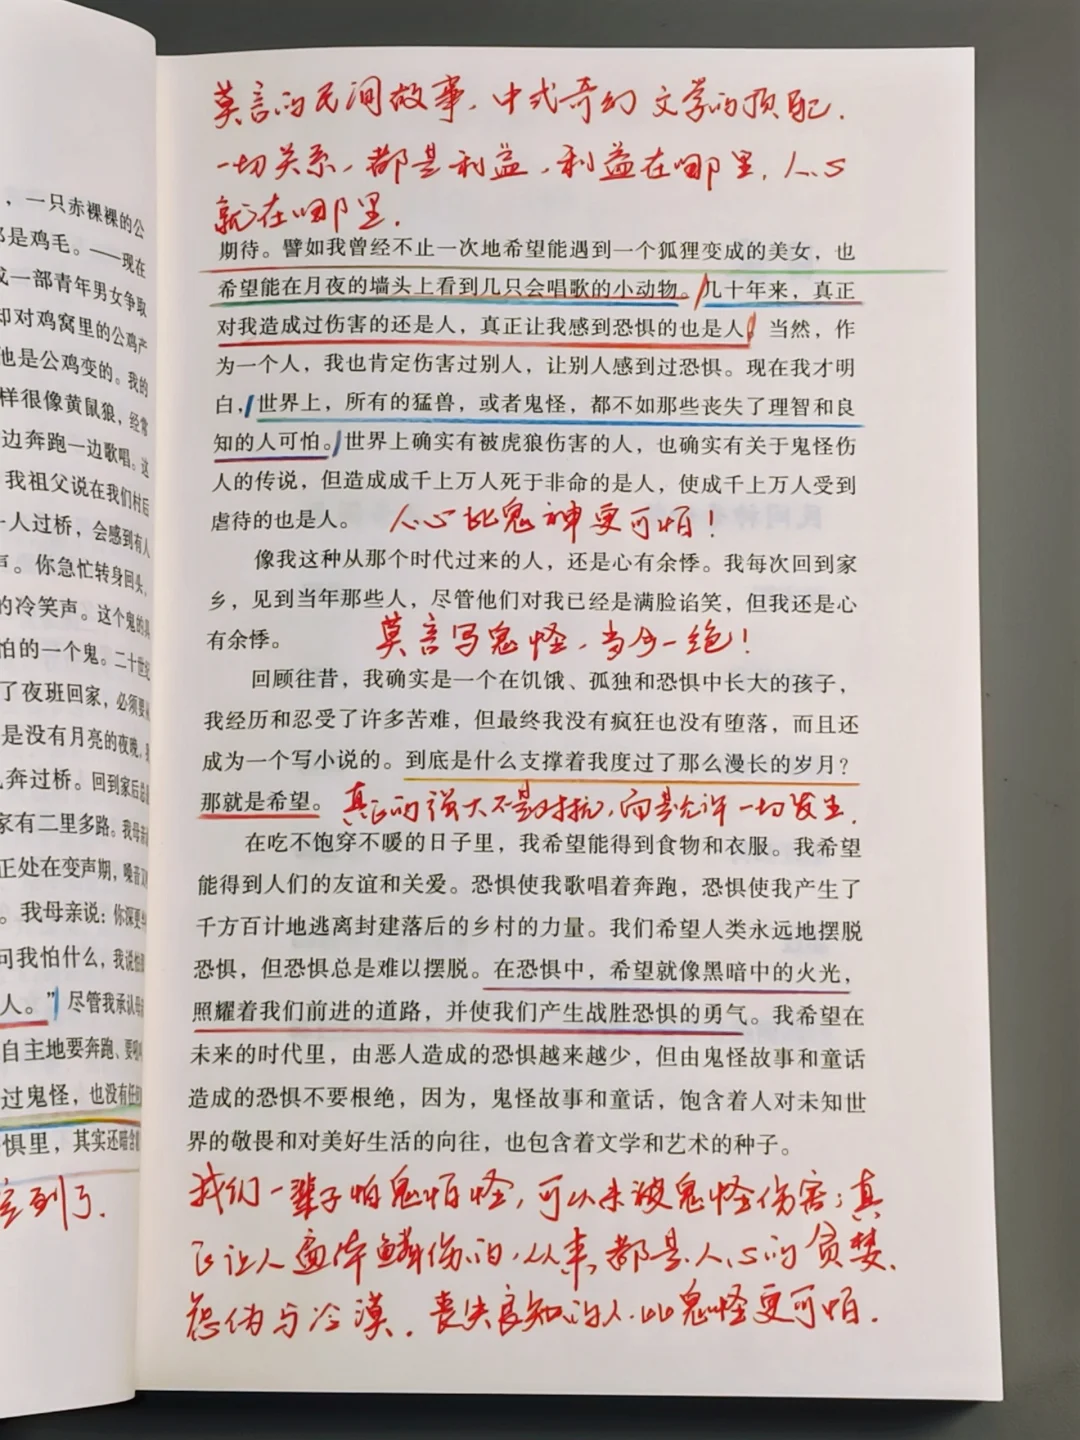 ，一只赤裸裸的公
是鸡毛。——现在
成一部青年男女争取
却对鸡窝里的公鸡产
他是公鸡变的。我的
样很像黄鼠狼，经常
边奔跑一边歌唱。这
我祖父说在我们村后
一人过桥，会感到有人
声。你急忙转身回头，
的冷笑声。这个鬼的真
怕的一个鬼。二十世纪
了夜班回家，必须要
是没有月亮的夜晚，我
奔过桥。回到家后总
家有二里多路。我母亲
正处在变声期，噪音又
。我母亲说：你深更
问我怕什么，我说怕
人。”尽管我承认
自主地要奔跑、要吼
过鬼怪，也没有任何
惧里，其实还暗含
到了.
莫言的民间故事.中式奇幻文学的顶配.
一切关系，都是利益，利益在哪里，人心
就在哪里.
期待。譬如我曾经不止一次地希望能遇到一个狐狸变成的美女，也
希望能在月夜的墙头上看到几只会唱歌的小动物。几十年来，真正
对我造成过伤害的还是人，真正让我感到恐惧的也是人。当然，作
为一个人，我也肯定伤害过别人，让别人感到过恐惧。现在我才明
白，世界上，所有的猛兽，或者鬼怪，都不如那些丧失了理智和良
知的人可怕。世界上确实有被虎狼伤害的人，也确实有关于鬼怪伤
人的传说，但造成成千上万人死于非命的是人，使成千上万人受到
虐待的也是人。 人心比鬼神更可怕！
像我这种从那个时代过来的人，还是心有余悸。我每次回到家
乡，见到当年那些人，尽管他们对我已经是满脸谄笑，但我还是心
有余悸。 莫言写鬼怪，当今一绝！
回顾往昔，我确实是一个在饥饿、孤独和恐惧中长大的孩子，
我经历和忍受了许多苦难，但最终我没有疯狂也没有堕落，而且还
成为一个写小说的。到底是什么支撑着我度过了那么漫长的岁月？
那就是希望。 真正的强大不是对抗，而是允许一切发生.
在吃不饱穿不暖的日子里，我希望能得到食物和衣服。我希望
能得到人们的友谊和关爱。恐惧使我歌唱着奔跑，恐惧使我产生了
千方百计地逃离封建落后的乡村的力量。我们希望人类永远地摆脱
恐惧，但恐惧总是难以摆脱。在恐惧中，希望就像黑暗中的火光，
照耀着我们前进的道路，并使我们产生战胜恐惧的勇气。我希望在
未来的时代里，由恶人造成的恐惧越来越少，但由鬼怪故事和童话
造成的恐惧不要根绝，因为，鬼怪故事和童话，饱含着人对未知世
界的敬畏和对美好生活的向往，也包含着文学和艺术的种子。
我们一辈子怕鬼怕怪，可从未被鬼怪伤害；真
正让人遍体鳞伤的，从来都是人心的贪婪、
虚伪与冷漠.丧失良知的人.比鬼怪更可怕.